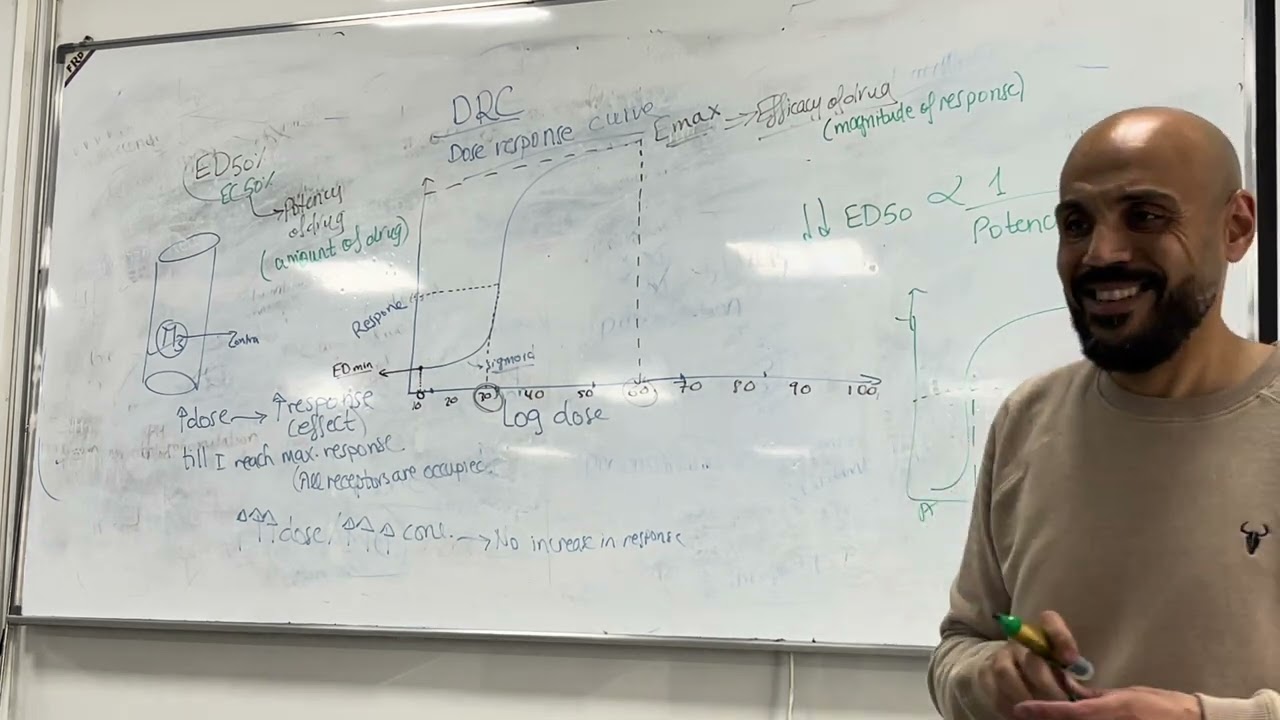 DRC
Dose response curve
Emax → Efficacy of drug
(magnitude of response)
ED50%
EC50%
Potency
of drug
(amount of drug)
↓↓ ED50 ∝ 1
Potenc
Response
M3
EDmin
sigmoid
10 20 30 40 50 60 70 80 90 100
Log dose
↑dose → ↑response
(effect)
till I reach max. response
(All receptors are occupied
↑↑↑dose/↑↑↑ conc. → No increase in response
A